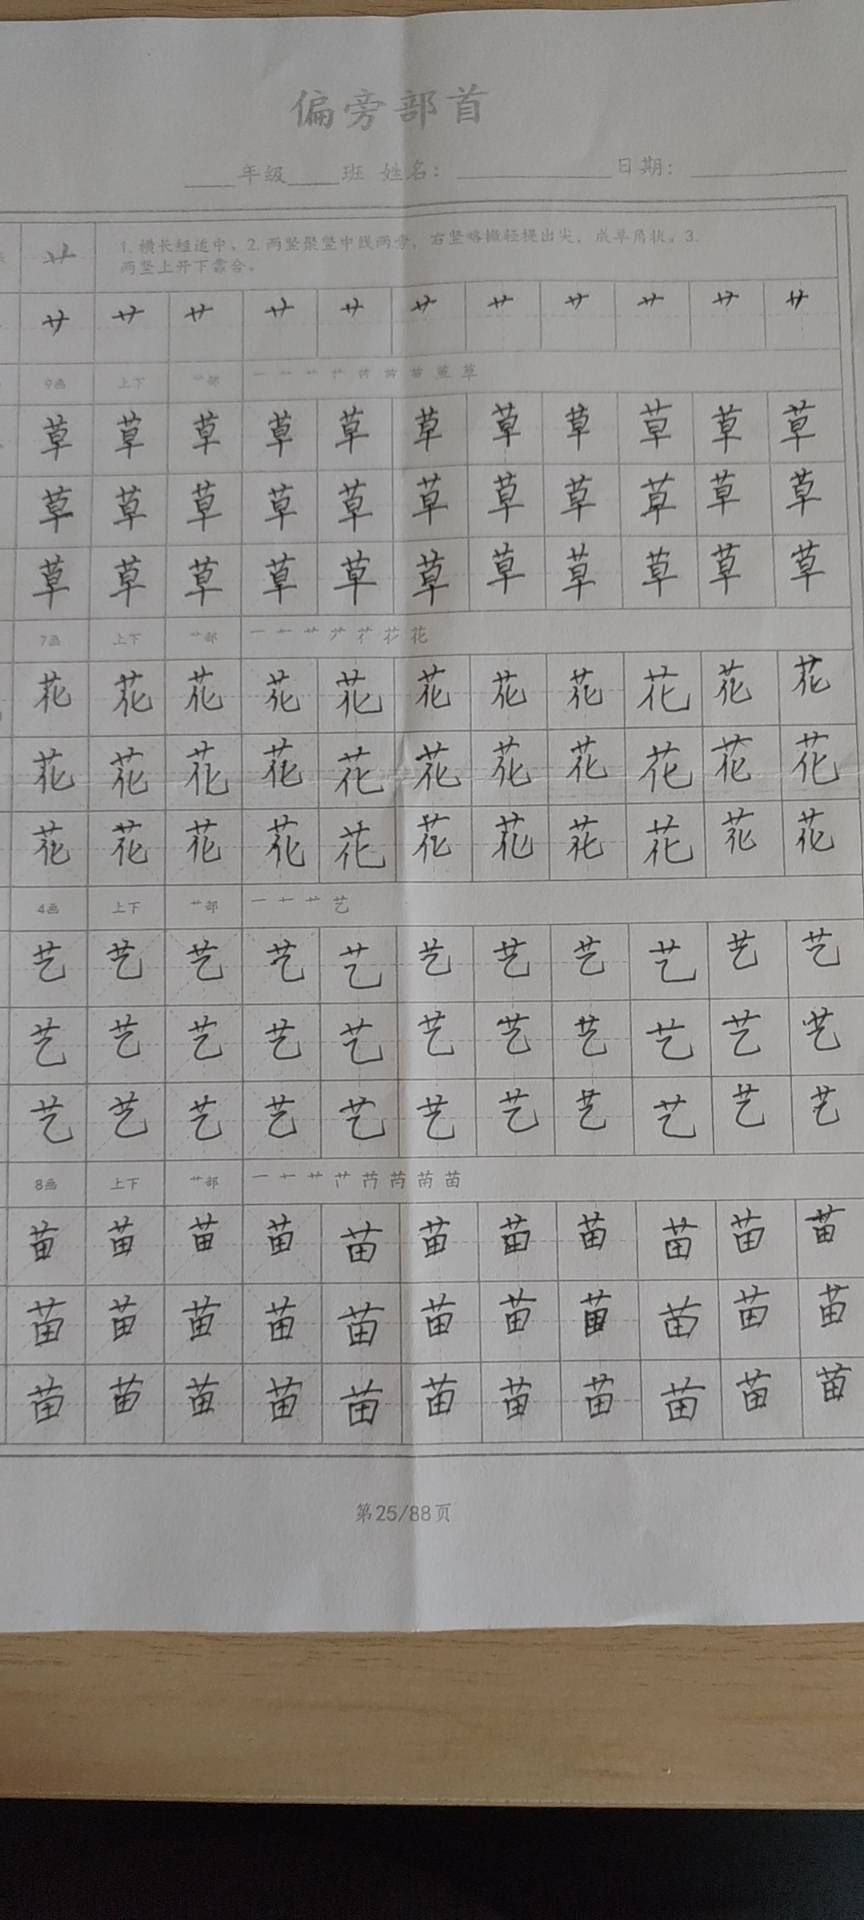 偏旁部首
____年级____班 姓名：____________日期：____________
艹 1. 横长短适中。2. 两竖聚竖中线两旁，右竖略撇轻提出尖，成草角状。3.
两竖上开下靠合。
艹 艹 艹 艹 艹 艹 艹 艹 艹 艹 艹
9画 上下 艹部 草
草 草 草 草 草 草 草 草 草 草 草
草 草 草 草 草 草 草 草 草 草 草
草 草 草 草 草 草 草 草 草 草 草
7画 上下 艹部 一 艹 花
花 花 花 花 花 花 花 花 花 花 花
花 花 花 花 花 花 花 花 花 花 花
花 花 花 花 花 花 花 花 花 花 花
4画 上下 艹部 一 艹 艺
艺 艺 艺 艺 艺 艺 艺 艺 艺 艺 艺
艺 艺 艺 艺 艺 艺 艺 艺 艺 艺 艺
艺 艺 艺 艺 艺 艺 艺 艺 艺 艺 艺
8画 上下 艹部 一 艹 苗
苗 苗 苗 苗 苗 苗 苗 苗 苗 苗 苗
苗 苗 苗 苗 苗 苗 苗 苗 苗 苗 苗
苗 苗 苗 苗 苗 苗 苗 苗 苗 苗 苗
第25/88页